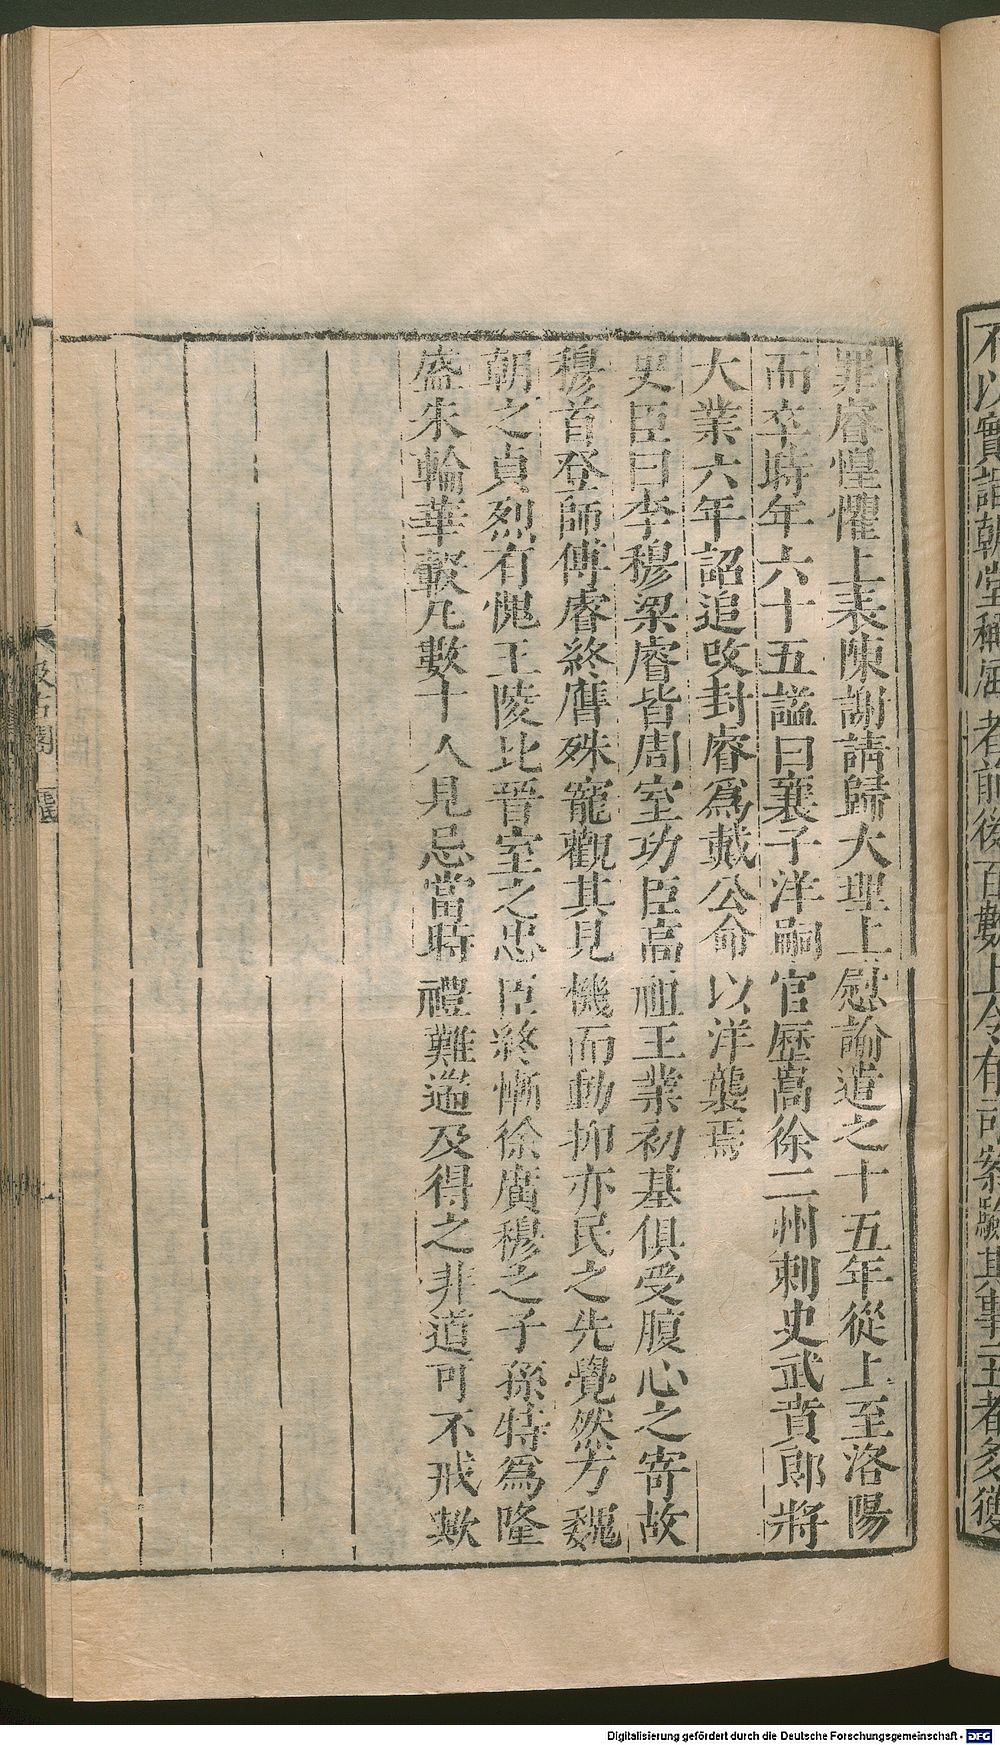 不以實詣朝堂稱 者前後百數上令有司案驗其事主者多獲
罪睿惶懼上表陳謝請歸大理上慰諭遣之十五年從上至洛陽
而卒時年六十五諡曰襄子洋嗣官歷嵩徐二州刺史武賁郎將
大業六年詔追改封睿爲戴公命以洋襲焉
史臣曰李穆梁睿皆周室功臣高祖王業初基俱受腹心之寄故
穆首登師傅睿終膺殊寵觀其見機而動抑亦民之先覺然方魏
朝之貞烈有愧王陵比晉室之忠臣終慚徐廣穆之子孫特爲隆
盛朱輪華轂凡數十人見忌當時禮難遄及得之非道可不戒歟
汲古閣
Digitalisierung gefördert durch die Deutsche Forschungsgemeinschaft - DFG